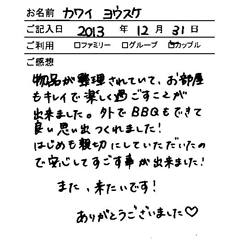 お名前 カワイ ヨウスケ
ご記入日 2013 年 12 月 31 日
ご利用 □ファミリー □グループ □カップル
ご感想
物品が整理されていて、お部屋
もキレイで楽しく過ごすことが
出来ました。外でBBQもできて
良い思い出つくれました!
はじめも親切にしていただいたの
で安心してすごす事が出来ました!
また、来たいです!
ありがとうございました♡